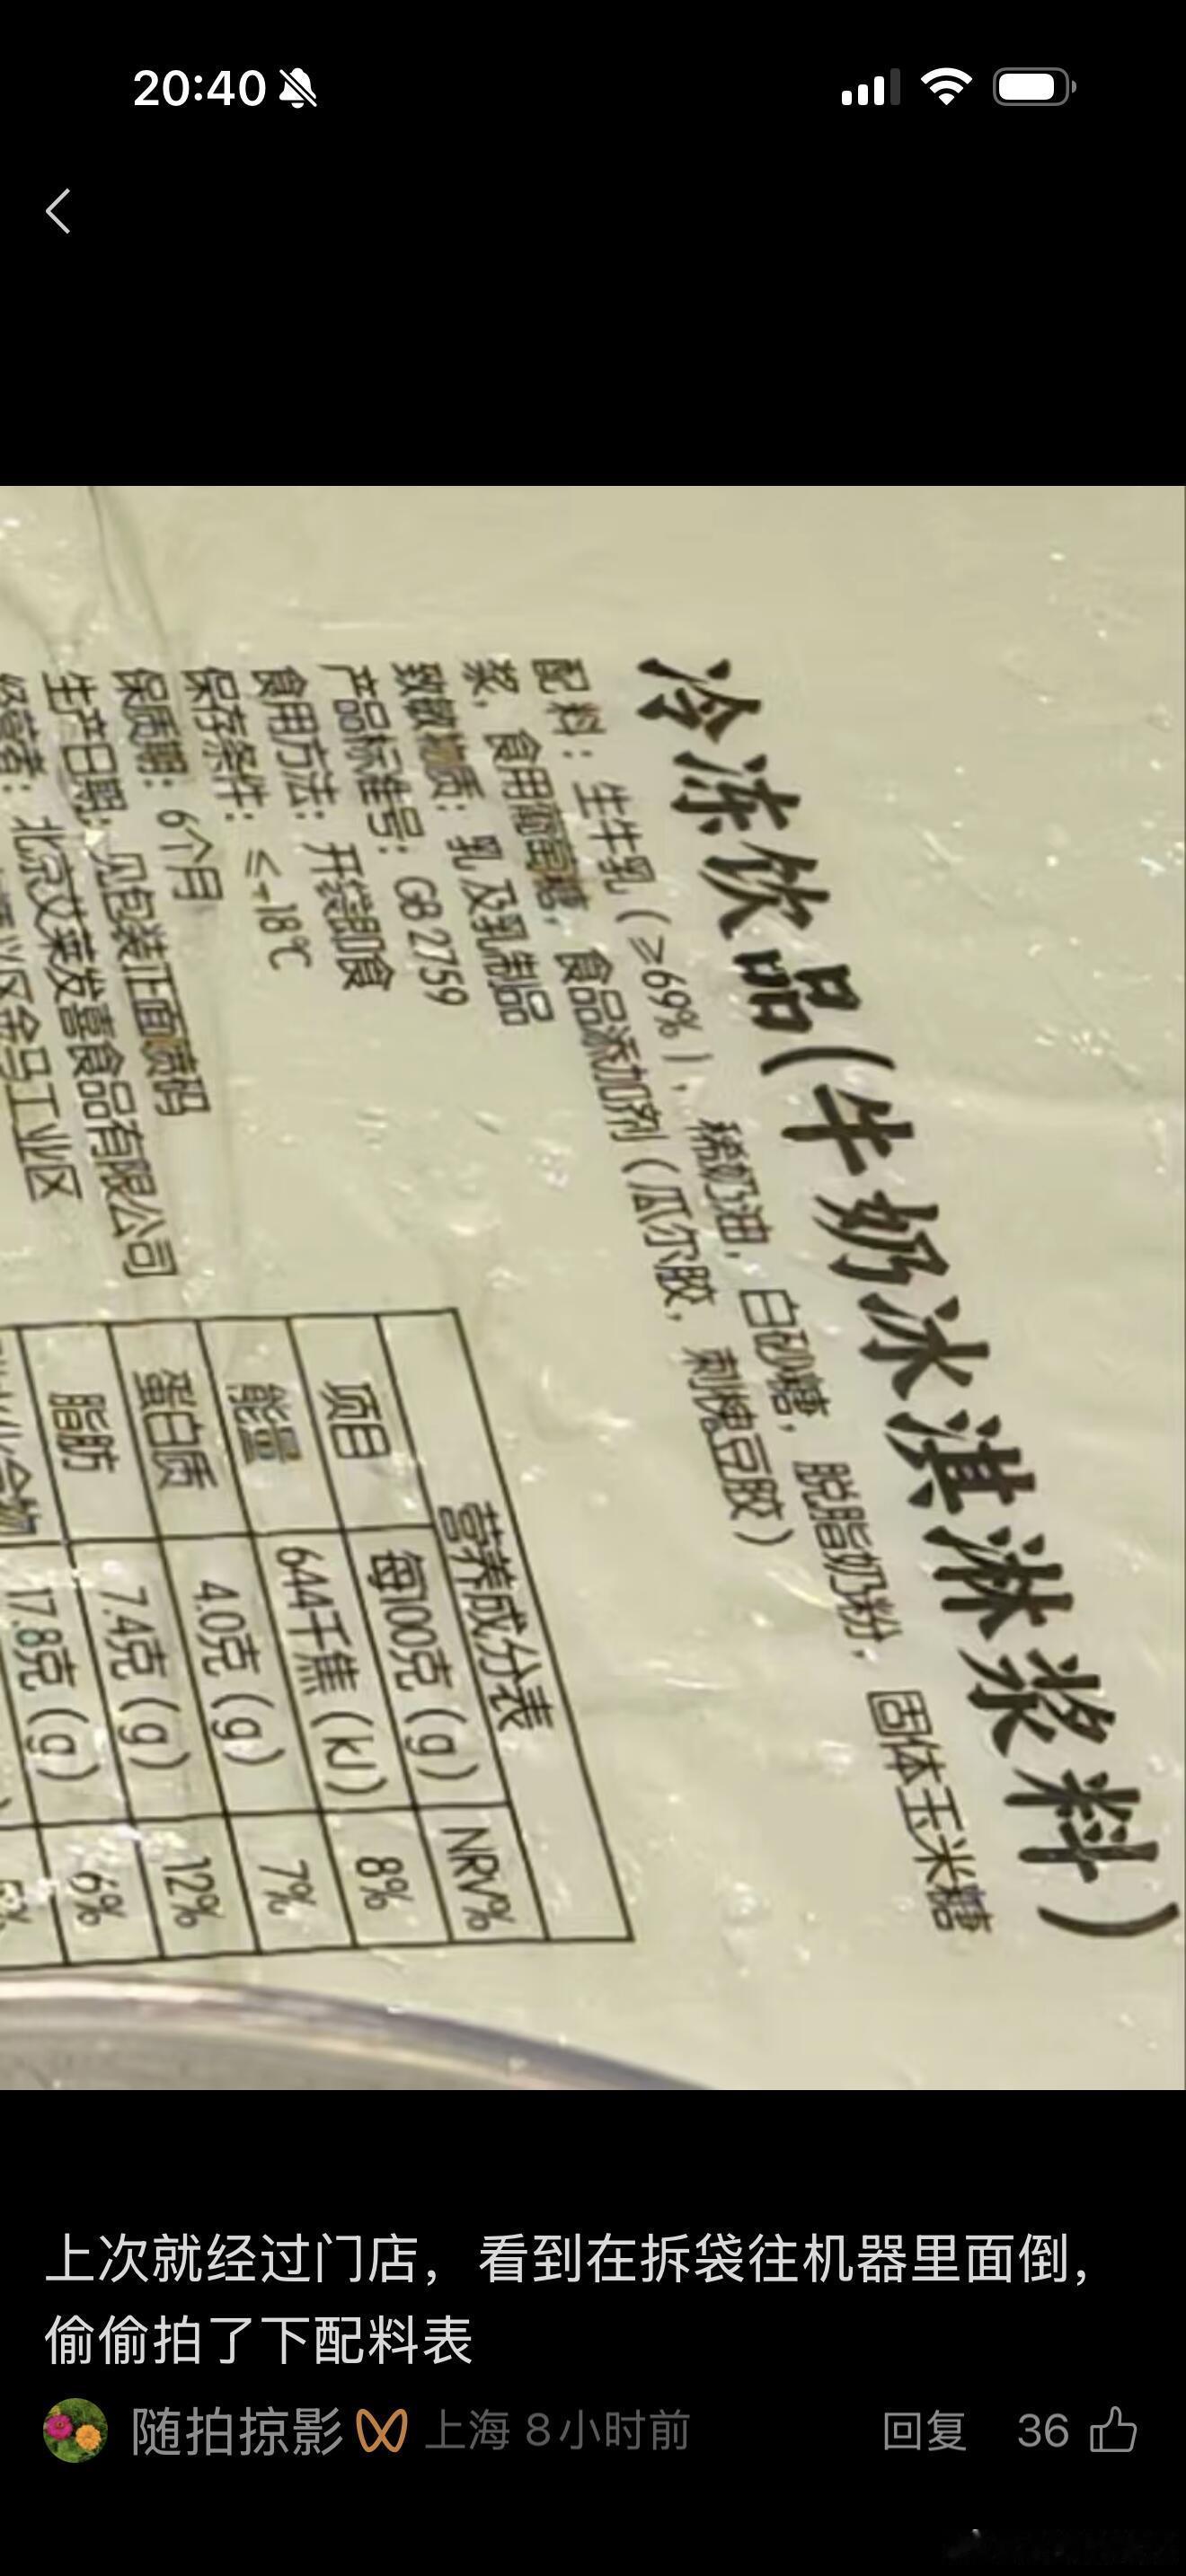 20:40
冷冻饮品(牛奶冰淇淋浆料)
配料：生牛乳(≥69%)，稀奶油，白砂糖，脱脂奶粉，固体玉米糖
浆，食用葡萄糖，食品添加剂(瓜尔胶，刺槐豆胶)
致敏物质：乳及乳制品
产品标准号：GB 2759
食用方法：开袋即食
保存条件：≤-18℃
保质期：6个月
生产日期：见包装正面喷码
经营者：北京艾莱发喜食品有限公司
金马工业区
营养成分表
项目 每100克(g) NRV%
能量 644千焦(kJ) 8%
蛋白质 4.0克(g) 7%
脂肪 7.4克(g) 12%
17.8克(g) 6%
上次就经过门店，看到在拆袋往机器里面倒，
偷偷拍了下配料表
随拍掠影 上海 8小时前 回复 36